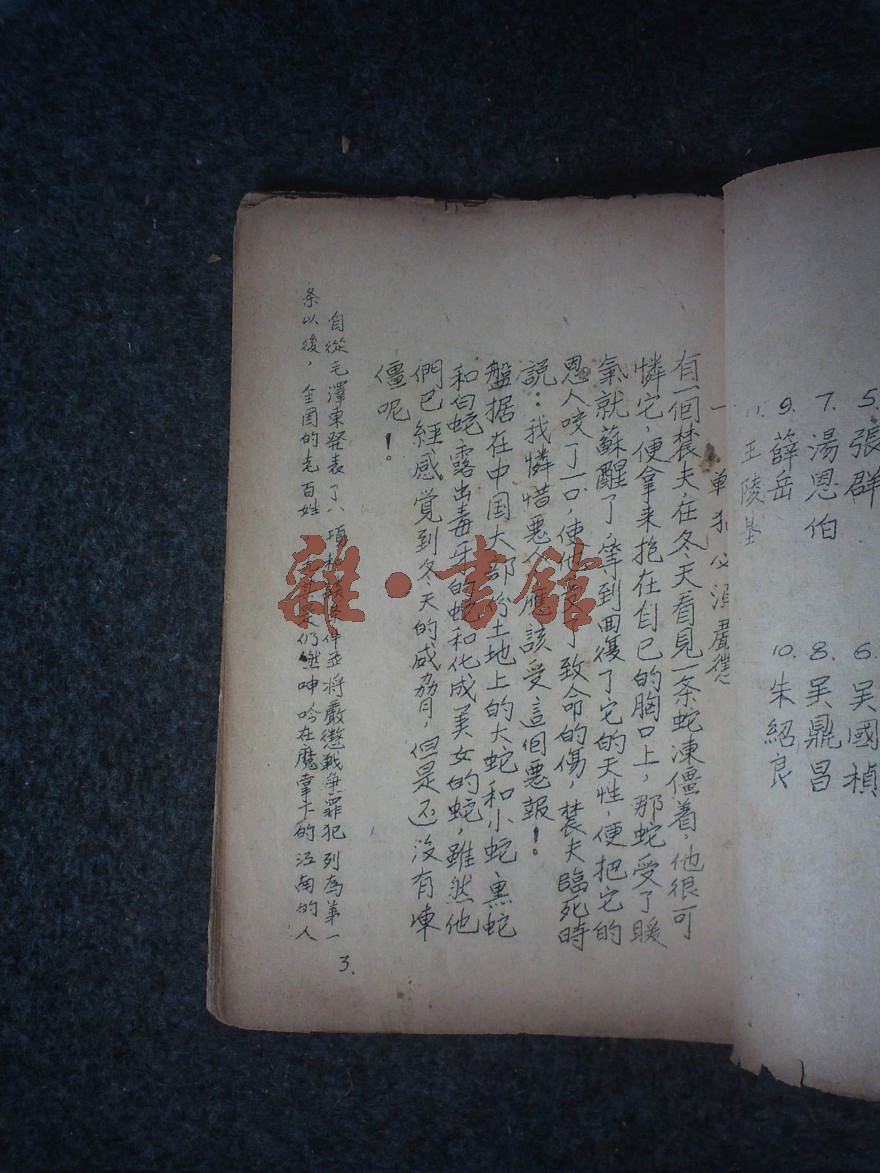 5. 張群
6. 吴國楨
7. 湯恩伯
8. 吴鼎昌
9. 薛岳
10. 朱紹良
11. 王陵基
一 單犯必須嚴懲
有一個農夫在冬天看見一条蛇凍僵着。他很可
憐它，便拿来抱在自己的胸口上，那蛇受了暖
氣就蘇醒了，等到回復了它的天性，便把它的
恩人咬了一口，使他受了致命的傷，農夫臨死時
説：我憐惜惡人應該受這個惡報！
盤据在中国大部份土地上的大蛇和小蛇黑蛇
和白蛇露出毒牙的蛇和化成美女的蛇，雖然他
們已經感覺到冬天的威脅，但是还没有凍
僵呢！
自從毛澤東発表了八項和談条件並将嚴懲戰爭罪犯列為第一
条以後，全国的老百姓 仍然呻吟在魔掌下的江南的人
3.
雜·書館